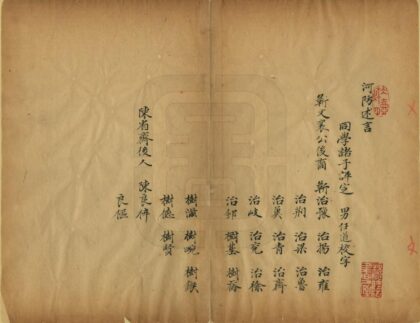 河防述言
同學諸子評定 男任道校字
靳文襄公後裔 靳治豫 治揚 治雍
治荆 治梁 治魯
治冀 治青 治齊
治岐 治兖 治徐
治邦 樹基 樹喬
樹滋 樹畹
樹德 樹賢
良偓
陳省齋後人 陳良佐